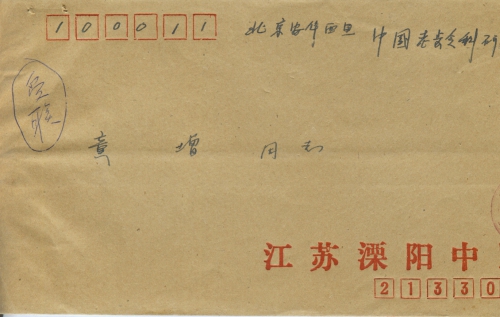 100011
北京安华西里 中国老龄科研
章增 同志
江苏溧阳中
21330